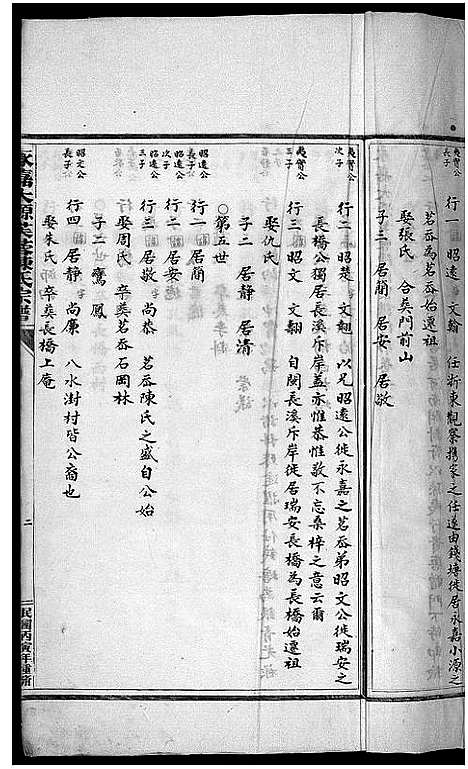 夷實公
長子
行一 昭遠 文翰 任浙東觀察携家之任遂由錢塘徙居永嘉小源之
茗岙為茗岙始遷祖
娶張氏 合葬門前山
子三 居簡 居安 居敬
夷實公
次子
行二 昭楚 文翹 以兄昭遠公徙永嘉之茗岙弟昭文公徙瑞安之
長橋公獨居長溪斥岸蓋亦惟恭惟敬不忘桑梓之意云爾
夷實公
三子
行三 昭文 文翱 自閩長溪斥岸徙居瑞安長橋為長橋始遷祖
娶仇氏
子二 居靜 居清
○第五世
昭遠公
長子
行一 居簡
昭遠公
次子
行二 居安
昭遠公
三子
行三 居敬 尚恭 茗岙陳氏之盛自公始
娶周氏 卒葬茗岙石岡林
子二 世鸞 鳳
昭文公
長子
行四 居靜 尚廉 八水澍村皆公裔也
娶朱氏 卒葬長橋上庵
二
民國丙寅年重修